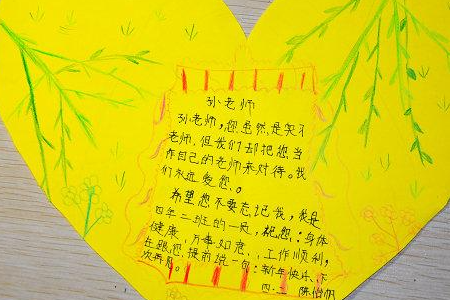 孙老师
孙老师，您虽然是实习
老师，但我们却把您当
作自己的老师来对待。我
们永远爱您。
希望您不要忘记我，我是
四年二班的一员，祝您：身体
健康，万事如意，工作顺利，
在跟您提前说一句：新年快乐，下
次再见。
四.二 陈怡帆